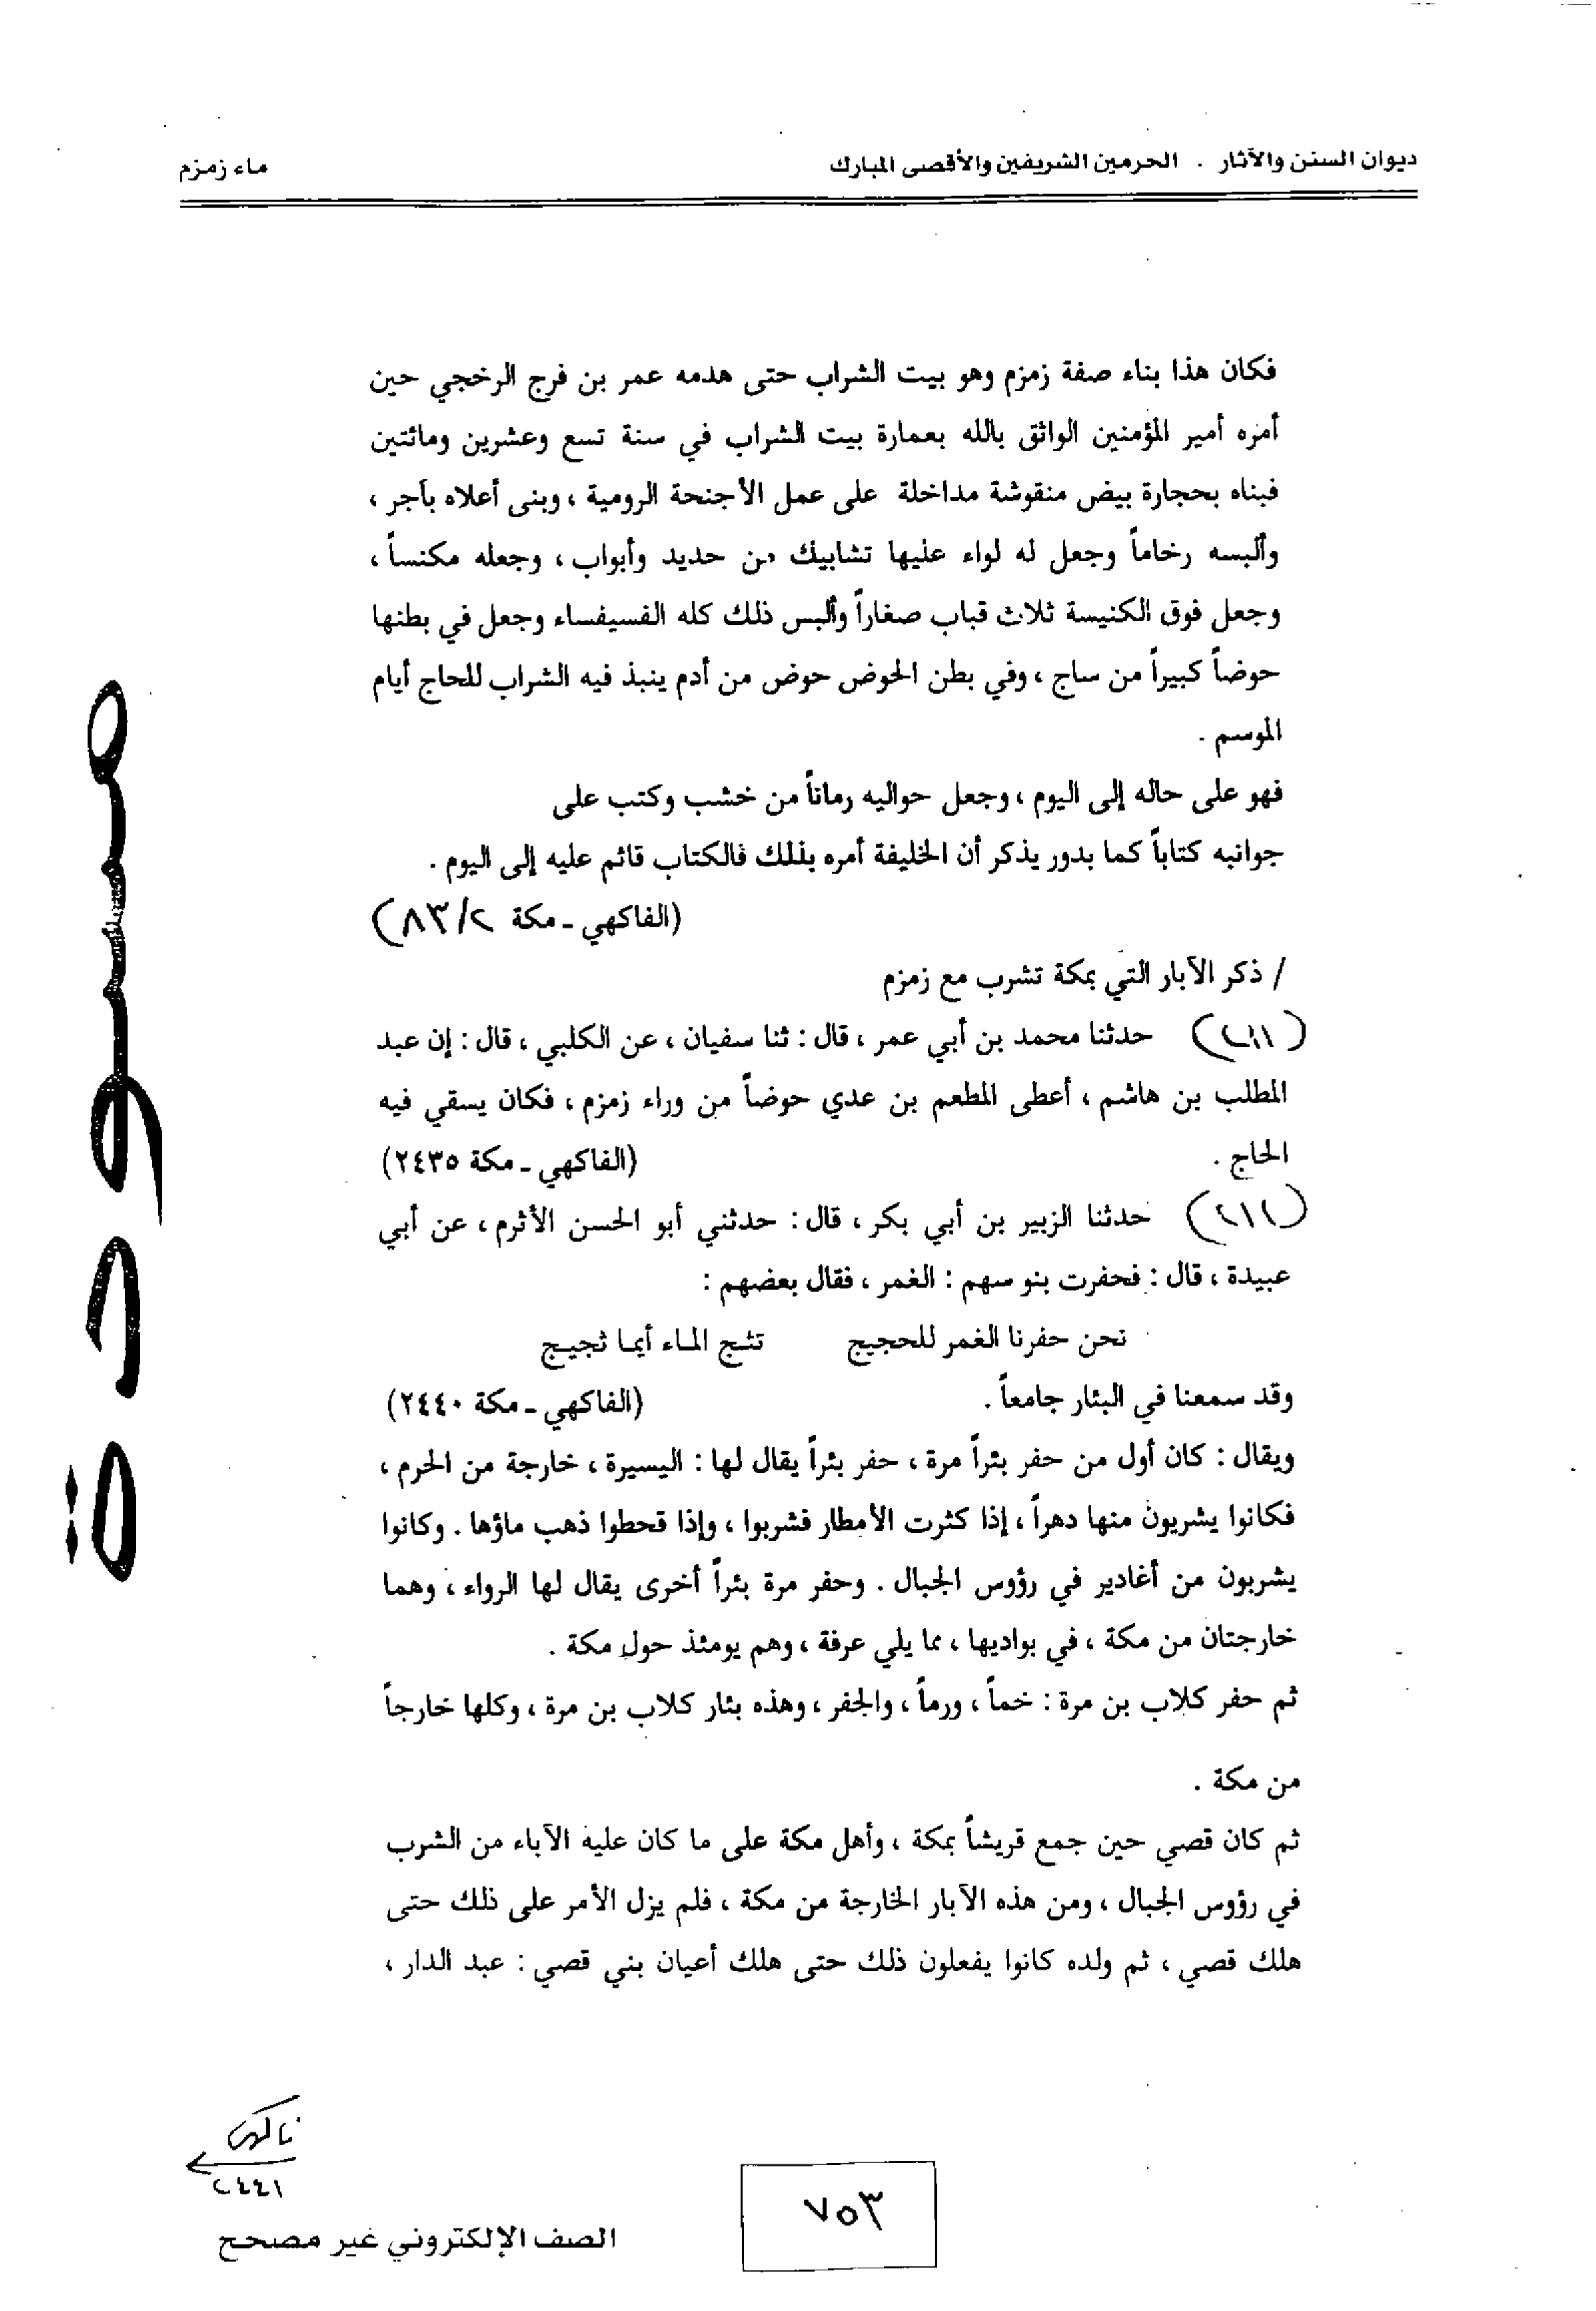 ديوان السنن والآثار . الحرمين الشريفين والأقصى المبارك
ماء زمزم
فكان هذا بناء صفة زمزم وهو بيت الشراب حتى هدمه عمر بن فرج الرخجي حين
أمره أمير المؤمنين الواثق بالله بعمارة بيت الشراب في سنة تسع وعشرين ومائتين
فبناه بحجارة بيض منقوشة مداخلة على عمل الأجنحة الرومية ، وبنى أعلاه بآجر ،
وألبسه رخاماً وجعل له لواء عليها تشابيك من حديد وأبواب ، وجعله مكنساً ،
وجعل فوق الكنيسة ثلاث قباب صغاراً وألبس ذلك كله الفسيفساء وجعل في بطنها
حوضاً كبيراً من ساج ، وفي بطن الحوض حوض من أدم ينبذ فيه الشراب للحاج أيام
الموسم .
فهو على حاله إلى اليوم ، وجعل حواليه رماناً من خشب وكتب على
جوانبه كتاباً كما بدور يذكر أن الخليفة أمره بذلك فالكتاب قائم عليه إلى اليوم .
(الفاكهي ـ مكة ٨٣/٢)
/ ذكر الآبار التي بمكة تشرب مع زمزم
حدثنا محمد بن أبي عمر ، قال : ثنا سفيان ، عن الكلبي ، قال : إن عبد
المطلب بن هاشم ، أعطى المطعم بن عدي حوضاً من وراء زمزم ، فكان يسقي فيه
الحاج .
(الفاكهي ـ مكة ٢٤٣٥)
حدثنا الزبير بن أبي بكر ، قال : حدثني أبو الحسن الأثرم ، عن أبي
عبيدة ، قال : فحفرت بنو سهم : الغمر ، فقال بعضهم :
نحن حفرنا الغمر للحجيج تثج الماء أيما ثجيج
وقد سمعنا في البئار جامعاً .
(الفاكهي ـ مكة ٢٤٤٠)
ويقال : كان أول من حفر بئراً مرة ، حفر بئراً يقال لها : اليسيرة ، خارجة من الحرم ،
فكانوا يشربون منها دهراً ، إذا كثرت الأمطار فشربوا ، وإذا قحطوا ذهب ماؤها . وكانوا
يشربون من أغادير في رؤوس الجبال . وحفر مرة بئراً أخرى يقال لها الرواء ، وهما
خارجتان من مكة ، في بواديها ، مما يلي عرفة ، وهم يومئذ حول مكة .
ثم حفر كلاب بن مرة : خماً ، ورماً ، والجفر ، وهذه بئار كلاب بن مرة ، وكلها خارجاً
من مكة .
ثم كان قصي حين جمع قريشاً بمكة ، وأهل مكة على ما كان عليه الآباء من الشرب
في رؤوس الجبال ، ومن هذه الآبار الخارجة من مكة ، فلم يزل الأمر على ذلك حتى
هلك قصي ، ثم ولده كانوا يفعلون ذلك حتى هلك أعيان بني قصي : عبد الدار ،
فاكهي
٢٤٤١
٧٥٣
الصف الإلكتروني غير مصحح
مسودة